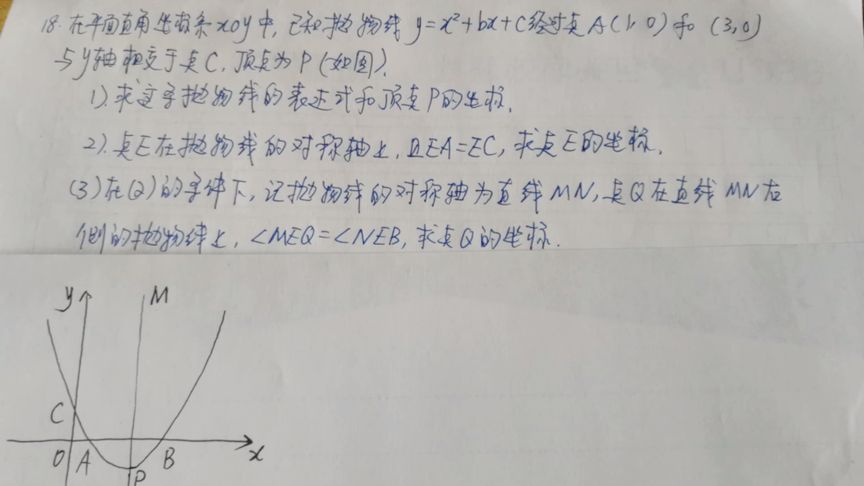 18. 在平面直角坐标系xoy中,已知抛物线 y=x²+bx+c经过点A(1,0)和 (3,0)
与y轴相交于点C,顶点为P(如图).
1).求这条抛物线的表达式和顶点P的坐标.
2).点E在抛物线的对称轴上,且EA=EC,求点E的坐标.
(3)在(2)的条件下,记抛物线的对称轴为直线MN,点Q在直线MN右
侧的抛物线上,∠MEQ=∠NEB,求点Q的坐标.
y
M
C
O A
P
B
x